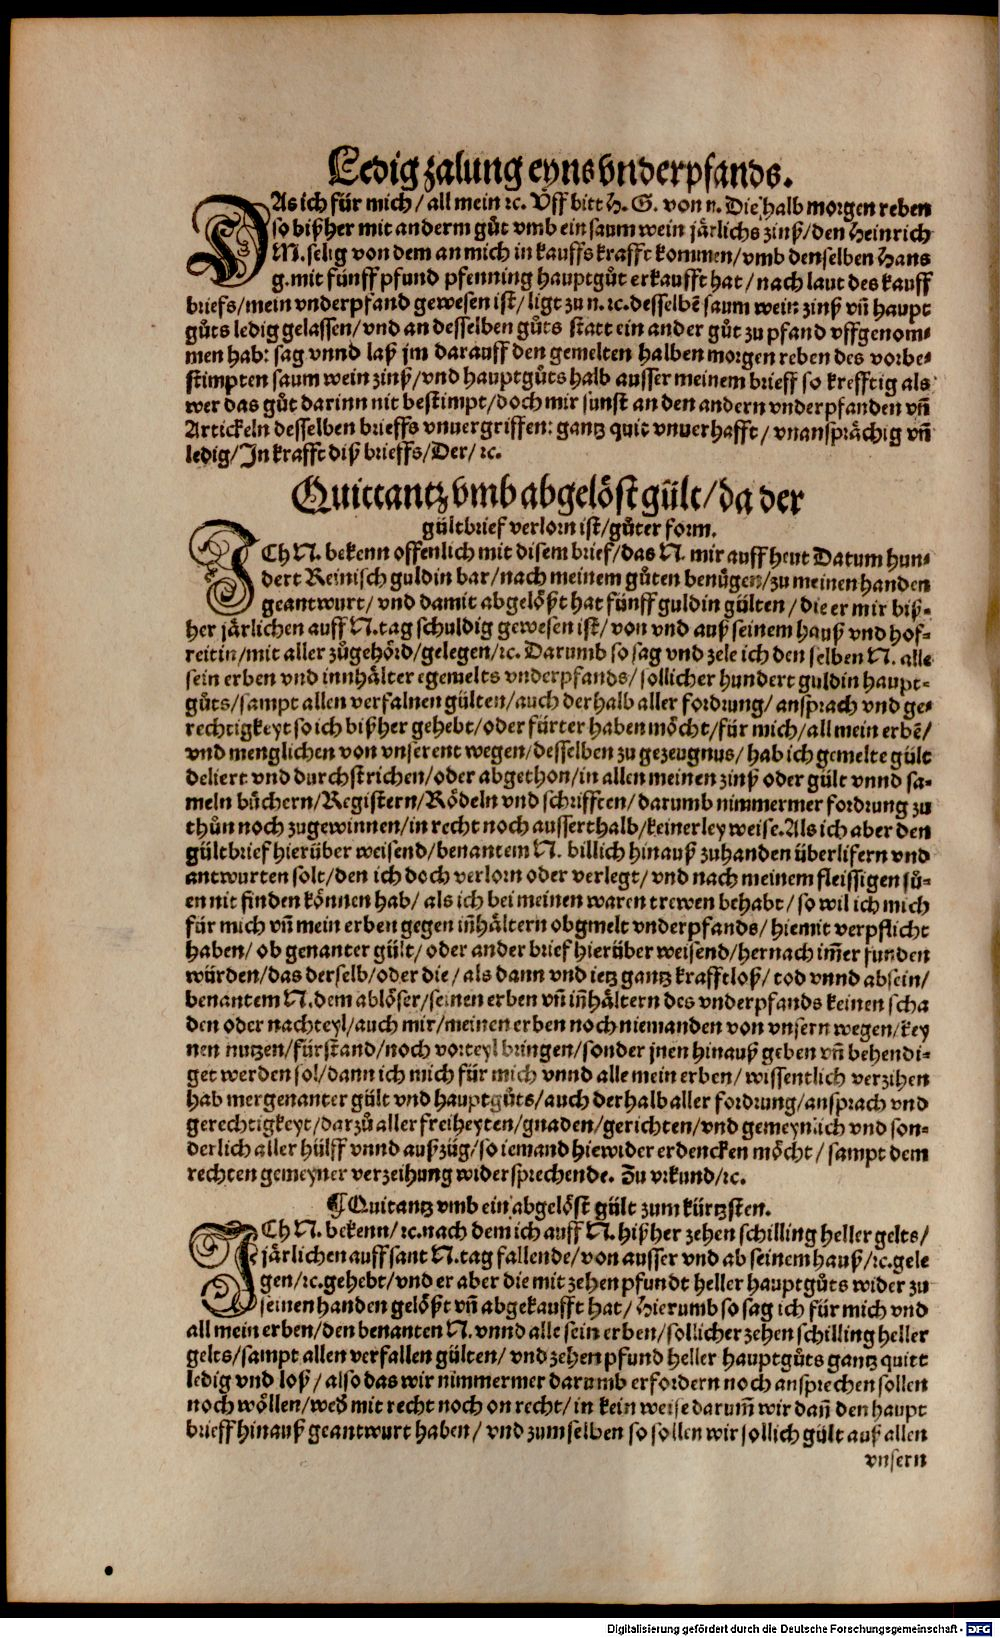 Ledigzalung eyns vnderpfands.
DAs ich für mich / all mein ꝛc. Vff bitt H. G. von n. Die halb morgen reben
so bißher mit anderm gůt vmb ein saum wein järlichs zinß / den Heinrich
M. selig von dem an mich in kauffs krafft kommen / vmb denselben Hans
g. mit fünff pfund pfenning hauptgůt erkaufft hat / nach laut des kauff
briefs / mein vnderpfand gewesen ist / ligt zu n. ꝛc. desselbē saum wein zinß vñ haupt
gůts ledig gelassen / vnd an desselben gůts statt ein ander gůt zu pfand vffgenom⸗
men hab: sag vnnd laß jm darauff den gemelten halben morgen reben des vorbe⸗
stimpten saum wein zinß / vnd hauptgůts halb ausser meinem brieff so krefftig als
wer das gůt darinn nit bestimpt / doch mir sunst an den andern vnderpfanden vñ
Artickeln desselben brieffs vnuergriffen: gantz quit vnuerhafft / vnansprächig vñ
ledig / In krafft diß brieffs / Der / ꝛc.
Quittantz vmb abgelöst gült / da der
gültbrief verlorn ist / gůter form.
ICh N. bekenn offenlich mit disem brief / das N. mir auff heut Datum hun⸗
dert Reinisch guldin bar / nach meinem gůten benügen / zu meinen handen
geantwurt / vnd damit abgelößt hat fünff guldin gülten / die er mir biß⸗
her järlichen auff N. tag schuldig gewesen ist / von vnd auß seinem hauß vnd hof⸗
reitin / mit aller zůgehörd / gelegen / ꝛc. Darumb so sag vnd zele ich den selben N. alle
sein erben vnd innhälter egemelts vnderpfands / sollicher hundert guldin haupt⸗
gůts / sampt allen verfalnen gülten / auch derhalb aller fordrung / ansprach vnd ge⸗
rechtigkeyt so ich bißher gehebt / oder fürter haben möcht / für mich / all mein erbē /
vnd menglichen von vnserent wegen / desselben zu gezeugnus / hab ich gemelte gült
deliert vnd durchstrichen / oder abgethon / in allen meinen zinß oder gült vnnd sa⸗
meln büchern / Registern / Rödeln vnd schrifften / darumb nimmermer fordrung zu
thůn noch zugewinnen / in recht noch ausserthalb / keinerley weise. Als ich aber den
gültbrief hierüber weisend / benantem N. billich hinauß zuhanden überlifern vnd
antwurten solt / den ich doch verlorn oder verlegt / vnd nach meinem fleissigen sů⸗
en nit finden können hab / als ich bei meinen waren trewen behabt / so wil ich mich
für mich vñ mein erben gegen iñhältern obgmelt vnderpfands / hiemit verpflicht
haben / ob genanter gült / oder ander brief hierüber weisend / hernach im̃er funden
würden / das derselb / oder die / als dann vnd ietz gantz krafftloß / tod vnnd absein /
benantem N. dem ablöser / seinen erben vñ iñhältern des vnderpfands keinen scha
den oder nachteyl / auch mir / meinen erben noch niemanden von vnsern wegen / key
nen nutzen / fürstand / noch vorteyl bringen / sonder jnen hinauß geben vñ behendi⸗
get werden sol / dann ich mich für mich vnnd alle mein erben / wissentlich verzihen
hab mergenanter gült vnd hauptgůts / auch derhalb aller fordrung / ansprach vnd
gerechtigkeyt / darzů aller freiheyten / gnaden / gerichten / vnd gemeynlich vnd son⸗
derlich aller hülff vnnd außzüg / so iemand hiewider erdencken möcht / sampt dem
rechten gemeyner verzeihung widersprechende. Zu vrkund / ꝛc.
¶ Quitantz vmb ein abgelöst gült zum kürtzsten.
ICh N. bekenn / ꝛc. nach dem ich auff N. bißher zehen schilling heller gelts /
järlichen auff sant N. tag fallende / von ausser vnd ab seinem hauß / ꝛc. gele
gen / ꝛc. gehebt / vnd er aber die mit zehen pfundt heller hauptgůts wider zu
seinen handen gelößt vñ abgekaufft hat / Hierumb so sag ich für mich vnd
all mein erben / den benanten N. vnnd alle sein erben / sollicher zehen schilling heller
gelts / sampt allen verfallen gülten / vnd zehen pfund heller hauptgůts gantz quitt
ledig vnd loß / also das wir nimmermer darumb erfordern noch ansprechen sollen
noch wöllen / wed' mit recht noch on recht / in kein weise darum̃ wir dañ den haupt
brieff hinauß geantwurt haben / vnd zum selben so sollen wir sollich gült auß allen
vnsern
Digitalisierung gefördert durch die Deutsche Forschungsgemeinschaft - DFG